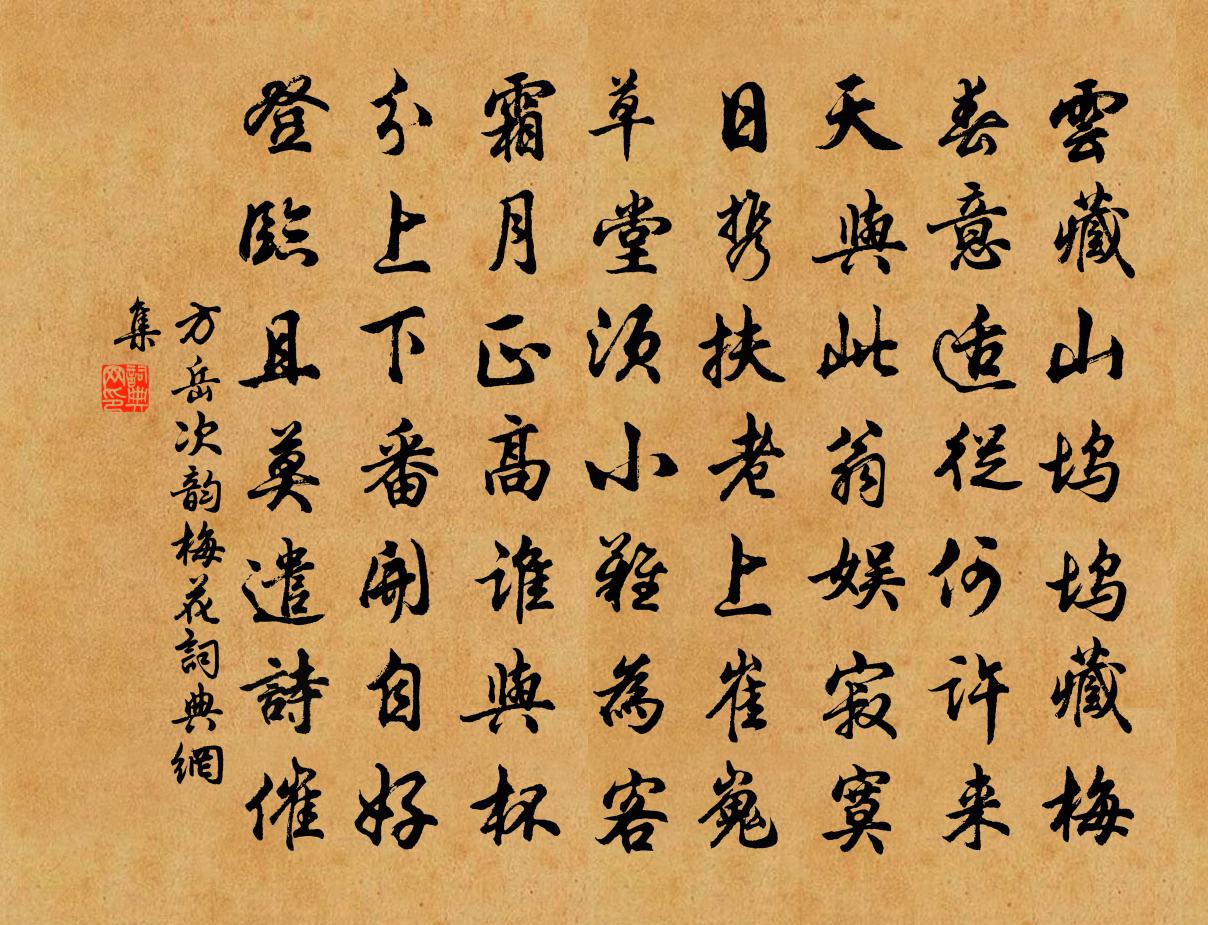 雲藏山塢塢藏梅
春意适從何許来
天與此翁娱寂寞
日携扶老上崔嵬
草堂須小難為客
霜月正高誰與杯
分上下番開自好
登臨且莫遣詩催
方岳次韵梅花詞典網
集
詞典网印